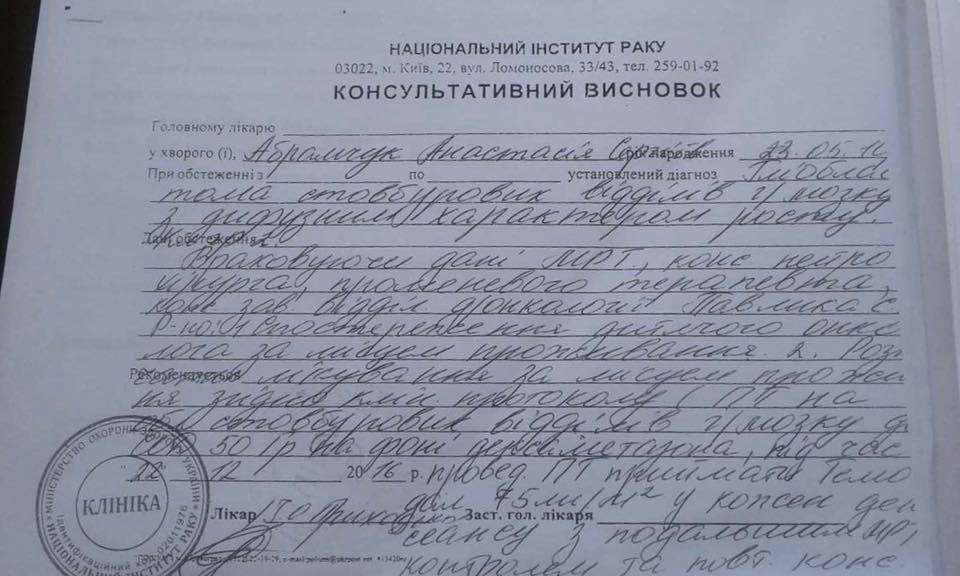 НАЦІОНАЛЬНИЙ ІНСТИТУТ РАКУ
03022, м. Київ, 22, вул. Ломоносова, 33/43, тел. 259-01-92
КОНСУЛЬТАТИВНИЙ ВИСНОВОК
Головному лікарю
у хворого (ї), Абрамчук Анастасія рік народження 23.05.1
При обстеженні з по установлений діагноз Гліоблас
тома стовбурових відділів г/мозку
з дифузним характером росту
Дані обстеження
Враховуючи дані МРТ, конс нейро
хірурга, променевого терапевта,
конс зав відділ д/онкології Павлика С
Р-но: 1 Спостереження дитячого онко
лога за місцем проживання. 2. Роз
Рекомендується лікування за місцем прожи
ня згідно клін. протоколу ( ПТ на
стовбурових відділів г/мозку
50 Гр на фоні дексаметазона, під час
22 12 2016 р. провед. ПТ приймати Темо
дал 75 мг/м² у кожен ден
Лікар Заст. гол. лікаря
сеансу з подальшим МРТ
контролем та повт. конс.
МІНІСТЕРСТВО ОХОРОНИ УКРАЇНИ
КЛІНІКА
Ідентифікаційний код 02011976
НАЦІОНАЛЬНИЙ ІНСТИТУТ РАКУ